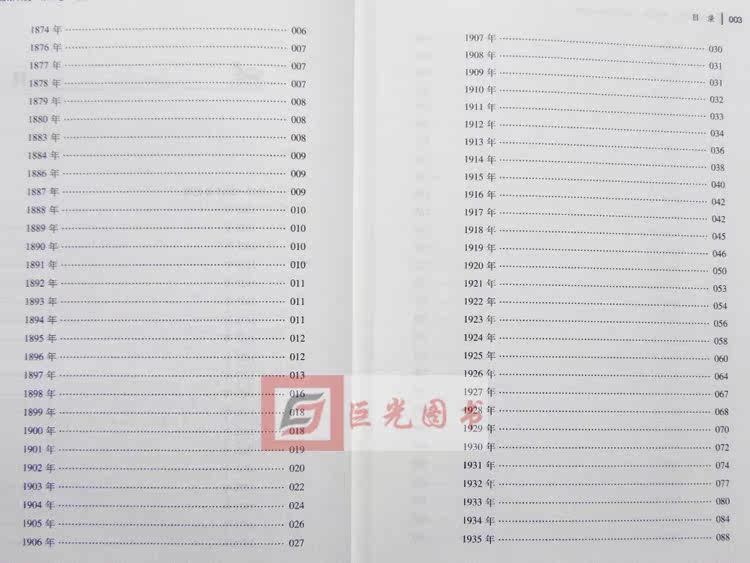 1874 年 006
1876 年 007
1877 年 007
1878 年 007
1879 年 008
1880 年 008
1883 年 008
1884 年 009
1886 年 009
1887 年 009
1888 年 010
1889 年 010
1890 年 010
1891 年 010
1892 年 011
1893 年 011
1894 年 011
1895 年 012
1896 年 012
1897 年 013
1898 年 016
1899 年 018
1900 年 018
1901 年 019
1902 年 020
1903 年 022
1904 年 024
1905 年 026
1906 年 027
目 录 003
1907 年 030
1908 年 031
1909 年 031
1910 年 032
1911 年 033
1912 年 034
1913 年 036
1914 年 038
1915 年 040
1916 年 042
1917 年 042
1918 年 045
1919 年 046
1920 年 050
1921 年 053
1922 年 054
1923 年 056
1924 年 058
1925 年 060
1926 年 064
1927 年 067
1928 年 068
1929 年 070
1930 年 072
1931 年 074
1932 年 077
1933 年 080
1934 年 084
1935 年 088
巨光图书